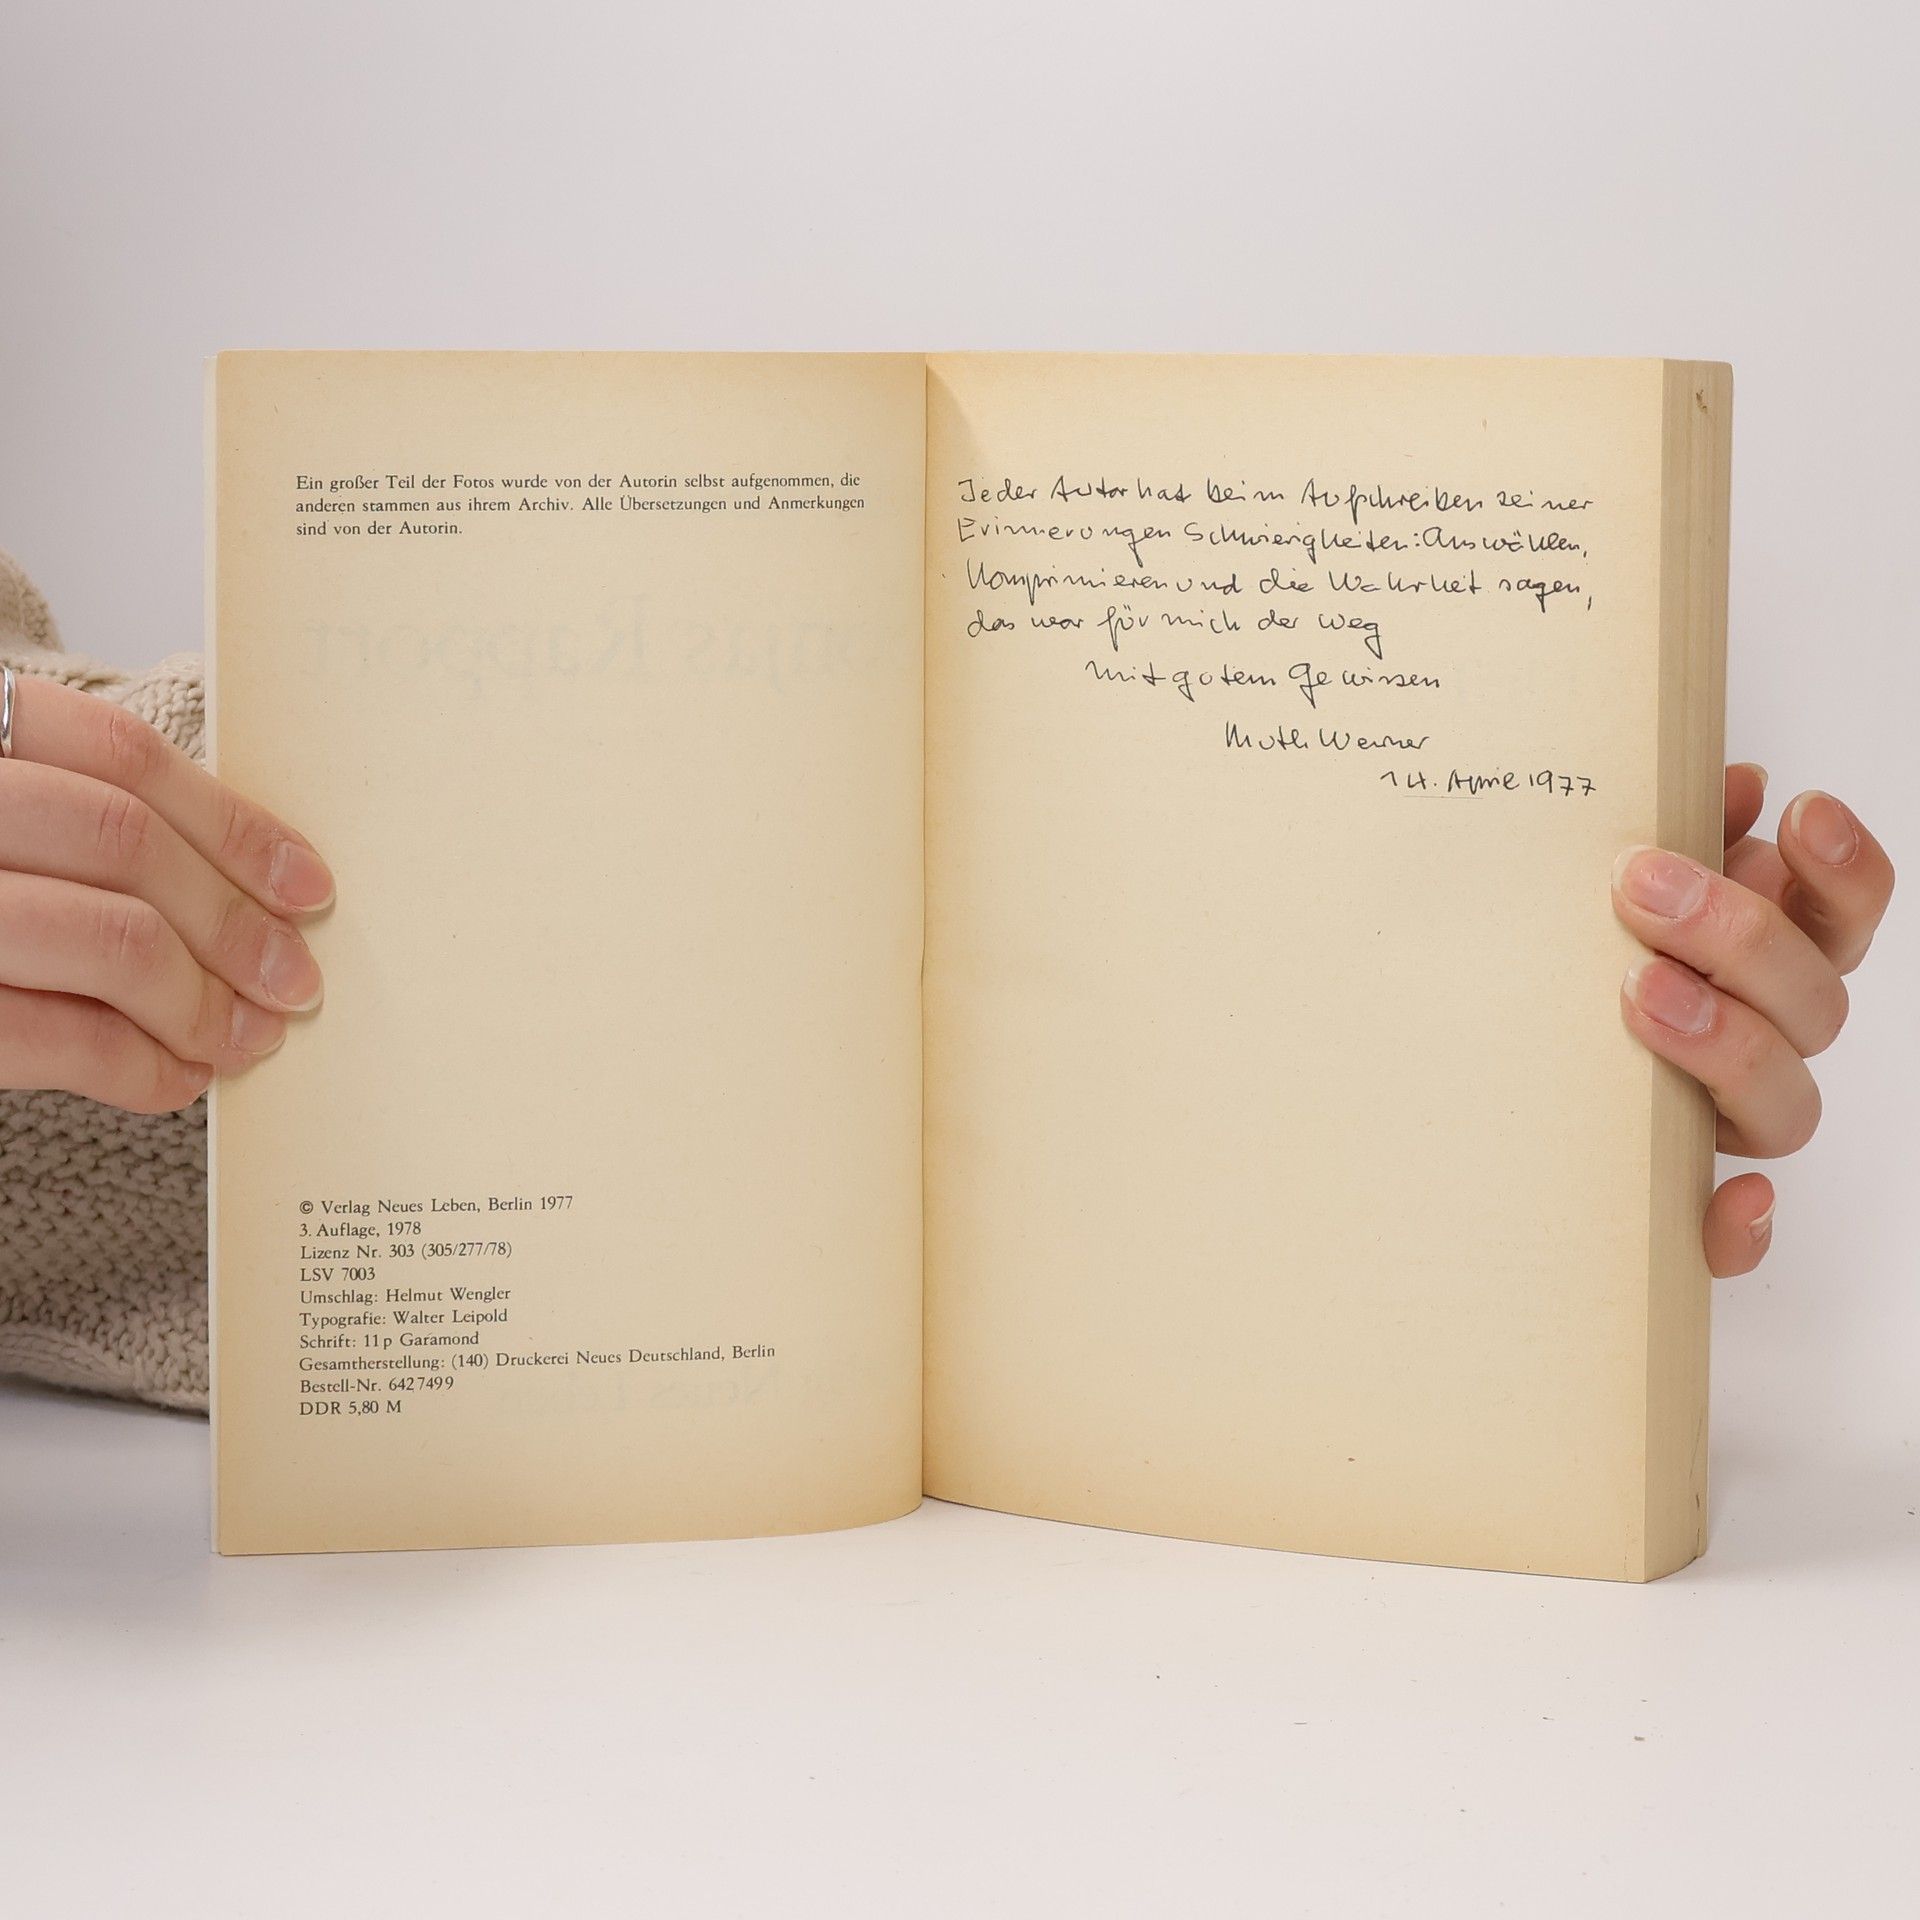 Ein großer Teil der Fotos wurde von der Autorin selbst aufgenommen, die
anderen stammen aus ihrem Archiv. Alle Übersetzungen und Anmerkungen
sind von der Autorin.
© Verlag Neues Leben, Berlin 1977
3. Auflage, 1978
Lizenz Nr. 303 (305/277/78)
LSV 7003
Umschlag: Helmut Wengler
Typografie: Walter Leipold
Schrift: 11 p Garamond
Gesamtherstellung: (140) Druckerei Neues Deutschland, Berlin
Bestell-Nr. 6427499
DDR 5,80 M
Jeder Autor hat beim Aufschreiben seiner
Erinnerungen Schwierigkeiten: Auswählen,
Komprimieren und die Wahrheit sagen,
das war für mich der Weg
Mit gutem Gewissen
Ruth Werner
14. April 1977